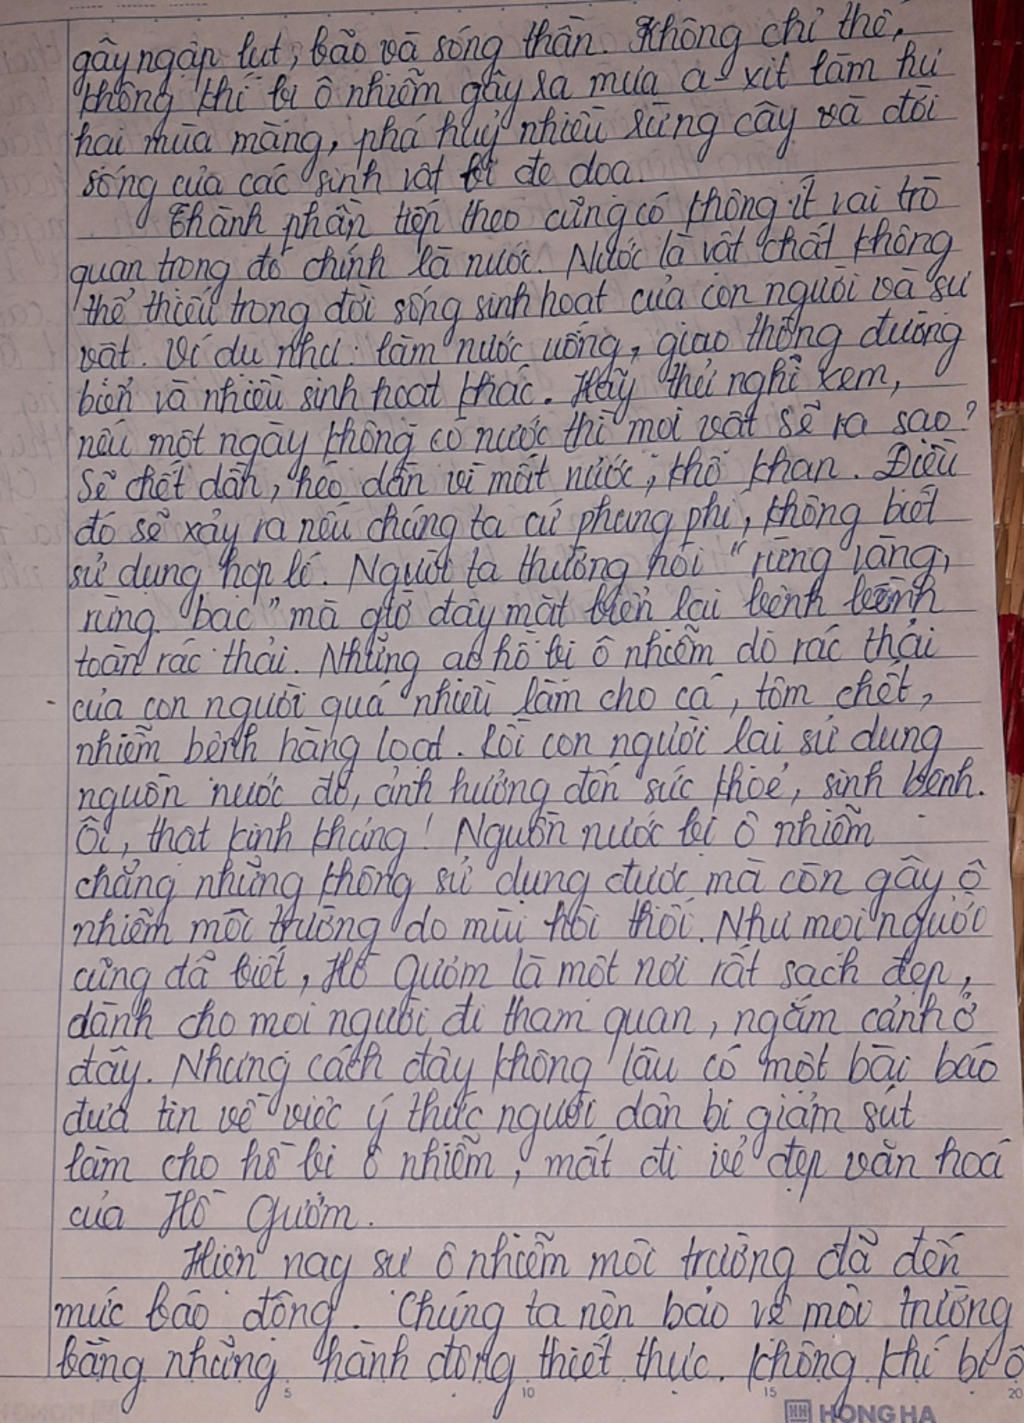 gây ngập lụt, bão và sóng thần. Không chỉ thế,
không khí bị ô nhiễm gây ra mưa a-xit làm hư
hại mùa màng, phá huỷ nhiều rừng cây và đời
sống của các sinh vật bị đe doạ.
Thành phần tiếp theo cũng có không ít vai trò
quan trọng đó chính là nước. Nước là vật chất không
thể thiếu trong đời sống sinh hoạt của con người và sự
vật. Ví dụ như: làm nước uống, giao thông đường
biển và nhiều sinh hoạt khác. Hãy thử nghĩ xem,
nếu một ngày không có nước thì mọi vật sẽ ra sao?
Sẽ chết dần, héo dần vì mất nước, khô khan. Điều
đó sẽ xảy ra nếu chúng ta cứ phung phí, không biết
sử dụng hợp lí. Người ta thường nói "rừng vàng,
rừng bạc" mà giờ đây mặt biển lại lềnh bềnh
toàn rác thải. Những ao hồ bị ô nhiễm do rác thải
của con người quá nhiều làm cho cá, tôm chết,
nhiễm bệnh hàng loạt. Rồi con người lại sử dụng
nguồn nước đó, ảnh hưởng đến sức khoẻ, sinh bệnh.
Ôi, thật kinh khủng! Nguồn nước bị ô nhiễm
chẳng những không sử dụng được mà còn gây ô
nhiễm môi trường do mùi hôi thối. Như mọi người
cũng đã biết, Hồ Gươm là một nơi rất sạch đẹp,
dành cho mọi người đi tham quan, ngắm cảnh ở
đây. Nhưng cách đây không lâu có một bài báo
đưa tin về việc ý thức người dân bị giảm sút
làm cho hồ bị ô nhiễm, mất đi vẻ đẹp văn hoá
của Hồ Gươm.
Hiện nay sự ô nhiễm môi trường đã đến
mức báo động. Chúng ta nên bảo vệ môi trường
bằng những hành động thiết thực. Không khí bị ô
5 10 15 20
HH HONG HA